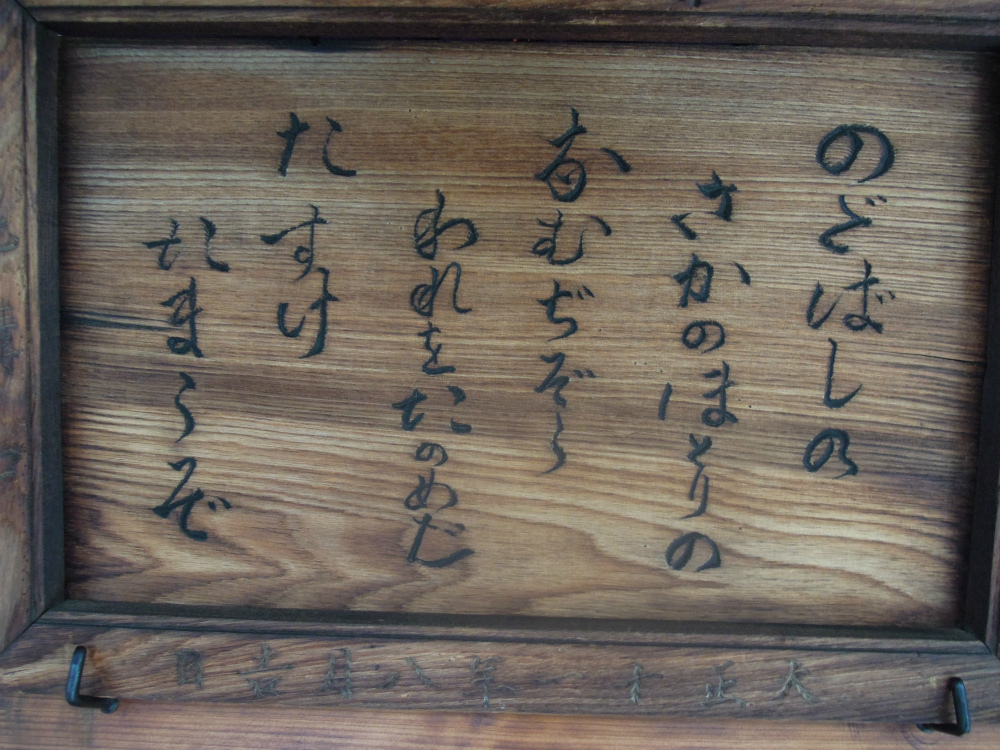 のどばしの
さかのほとりの
なむぢぞう
われをたのめば
たすけ
たまうぞ
大正十一年八月吉日